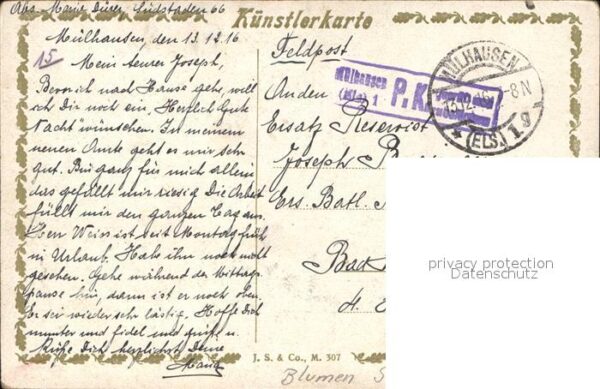 Abs. Marie Dürer, Südstaden 66
Künstlerkarte
15
Mülhausen, den 13.12.16
Mein teurer Joseph,
Bevor ich nach Hause geh, will
ich Dir noch ein „Herzlich Gute
Nacht" wünschen. In meinem
neuen Amte geht es mir sehr
gut. Bin ganz für mich allein
das gefällt mir riesig. Die Arbeit
füllt mir den ganzen Tag aus.
Herr Weiss ist seit Montag früh
in Urlaub. Habe ihn noch nicht
gesehen. Gehe während der Mittags-
pause hin, dann ist er noch oben.
Er sei wieder sehr lästig. Hoffe Dich
munter und fidel und u.
Küsse Dich herzlichst Deine
Maria
Feldpost
An den
Ersatz Reservist
Joseph
Ers. Batl.
Bad
Mülhausen
(Els) 1
P.K.
MÜLHAUSEN
13.12.16 -8N
* (ELS.) 1 g
privacy protection
Datenschutz
J. S. & Co., M. 307
Blumen